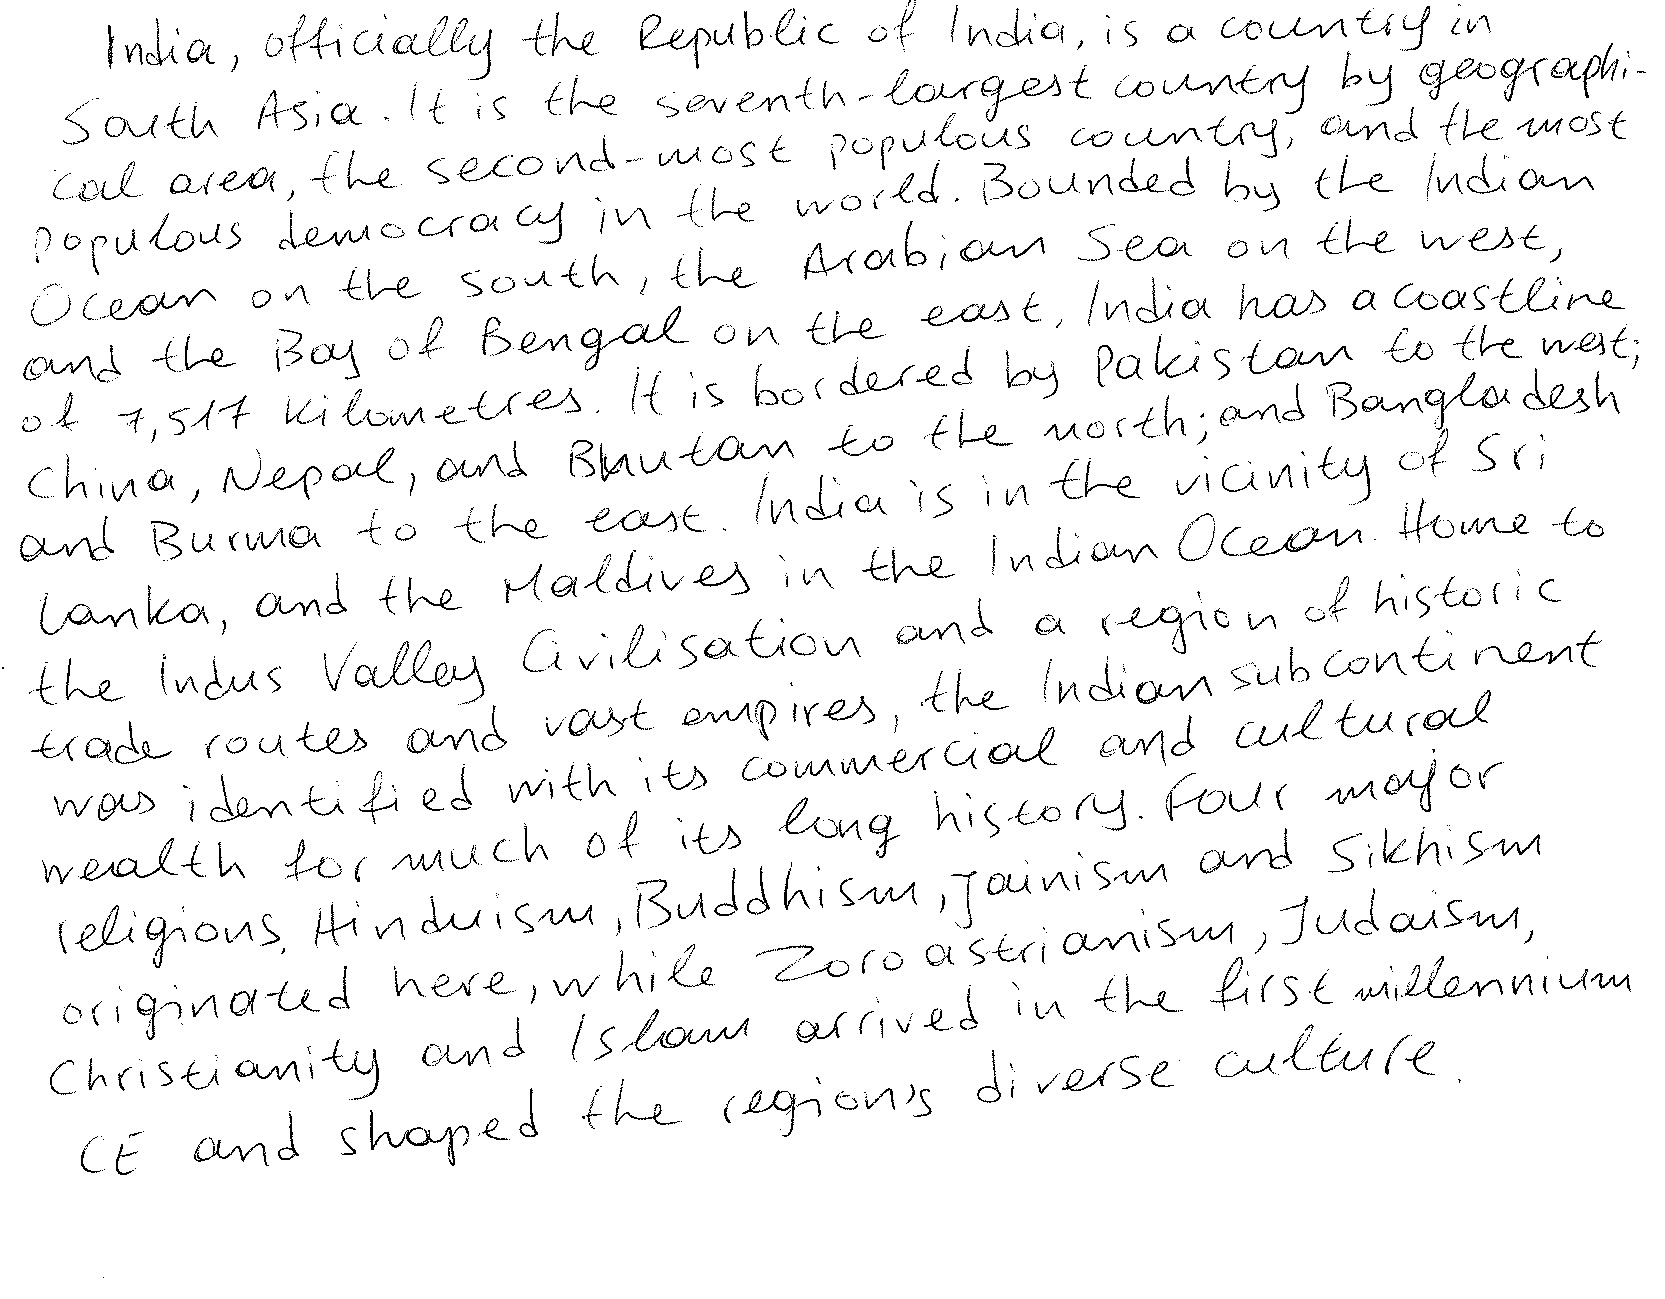 India, officially the Republic of India, is a country in
South Asia. It is the seventh-largest country by geographi-
cal area, the second-most populous country, and the most
populous democracy in the world. Bounded by the Indian
Ocean on the south, the Arabian Sea on the west,
and the Bay of Bengal on the east, India has a coastline
of 7,517 kilometres. It is bordered by Pakistan to the west;
China, Nepal, and Bhutan to the north; and Bangladesh
and Burma to the east. India is in the vicinity of Sri
Lanka, and the Maldives in the Indian Ocean. Home to
the Indus Valley Civilisation and a region of historic
trade routes and vast empires, the Indian subcontinent
was identified with its commercial and cultural
wealth for much of its long history. Four major
religions, Hinduism, Buddhism, Jainism and Sikhism
originated here, while Zoroastrianism, Judaism,
Christianity and Islam arrived in the first millennium
CE and shaped the region's diverse culture.